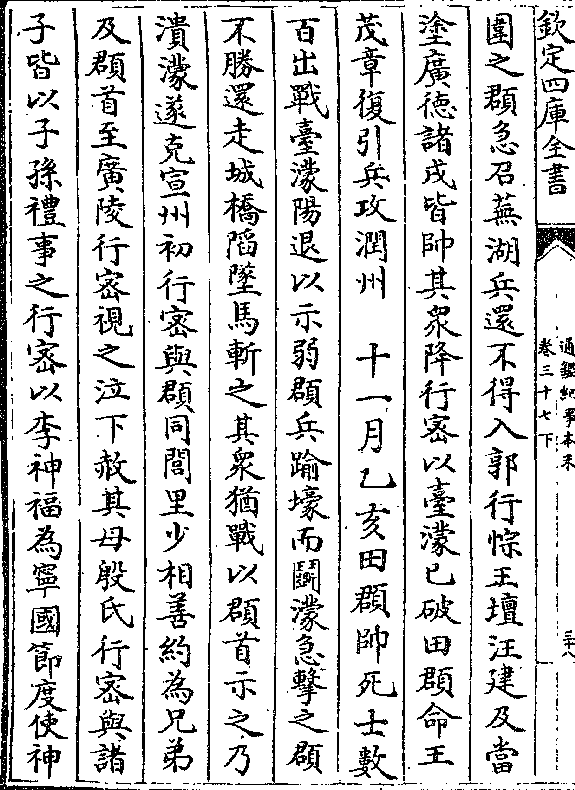 欽定四庫全書
通鑑紀事本末
卷三十七下
三十八
圍之頵急召蕪湖兵還不得入郭行悰王壇汪建及當
塗廣徳諸戍皆帥其衆降行宻以臺濛已破田頵命王
茂章復引兵攻潤州 十一月乙亥田頵帥死士數
百出戰臺濛陽退以示弱頵兵踰壕而鬭濛急擊之頵
不勝還走城橋䧟墜馬斬之其衆猶戰以頵首示之乃
潰濛遂克宣州初行宻與頵同閭里少相善約為兄弟
及頵首至廣陵行宻視之泣下赦其母殷氏行宻與諸
子皆以子孫禮事之行宻以李神福為寧國節度使神